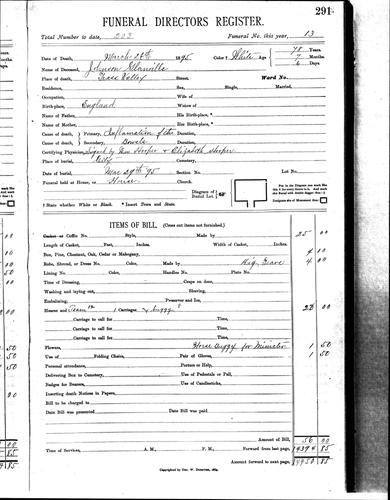 291
FUNERAL DIRECTORS REGISTER.
Total Number to date, 203 Funeral No. this year, 13
Date of Death, March 28th 1895 Color † White Age 78 Years.
7 Months.
6 Days.
Name of Deceased, Johnson
Place of death, Valley Street. Ward No.
Residence, Sex, Single, Married.
Occupation, Wife of
Birth-place, England Widow of
Name of Father, His Birth-place, *
Name of Mother, Her Birth-place, *
Cause of death Primary, Inflamation of the Duration,
Cause of death Secondary, Bowels Duration,
Certifying Physician, Signed by Hooper & Elizabeth Hooper
Place of burial, City Cemetery,
Date of burial, Mar 29th 95 Section No. Lot No.
Funeral held at Home, or House Church.
Diagram of Burial Lot.
† State whether White or Black. * Insert Town and State.
ITEMS OF BILL. (Cross out items not furnished.)
Casket or Coffin No. Style, Made by 25 00
Length of Casket, Feet, Inches. Width of Casket, Inches.
Box, Pine, Chestnut, Oak, Cedar or Mahogany, 4 00
Robe, Shroud, or Dress No. Color, Made by Dig. Grave 4 00
Lining No. Color, Handles No. Plate No.
Time of Dressing, Crape on door,
Washing and laying out, Shaving,
Embalming, Preserver and Ice,
Hearse and Team Carriages & buggy 20 00
Carriage to call for Time,
Carriage to call for Time,
Carriage to call for Time,
Carriage to call for Time,
Flowers, Horse Buggy for Minister 1 50
Use of Folding Chairs, Pair of Gloves, 1 50
Personal attendance, Porters or Help,
Delivering Box to Cemetery, Use of Pedestals or Pall,
Badges for Bearers, Use of Candlesticks,
Inserting death Notices in Papers,
Bill to be charged to
Date Bill was presented Date Bill was paid
Amount of Bill, 56 00
Time of Services, A. M., P. M. Forward from last page, 85
Amount forward to next page, 85